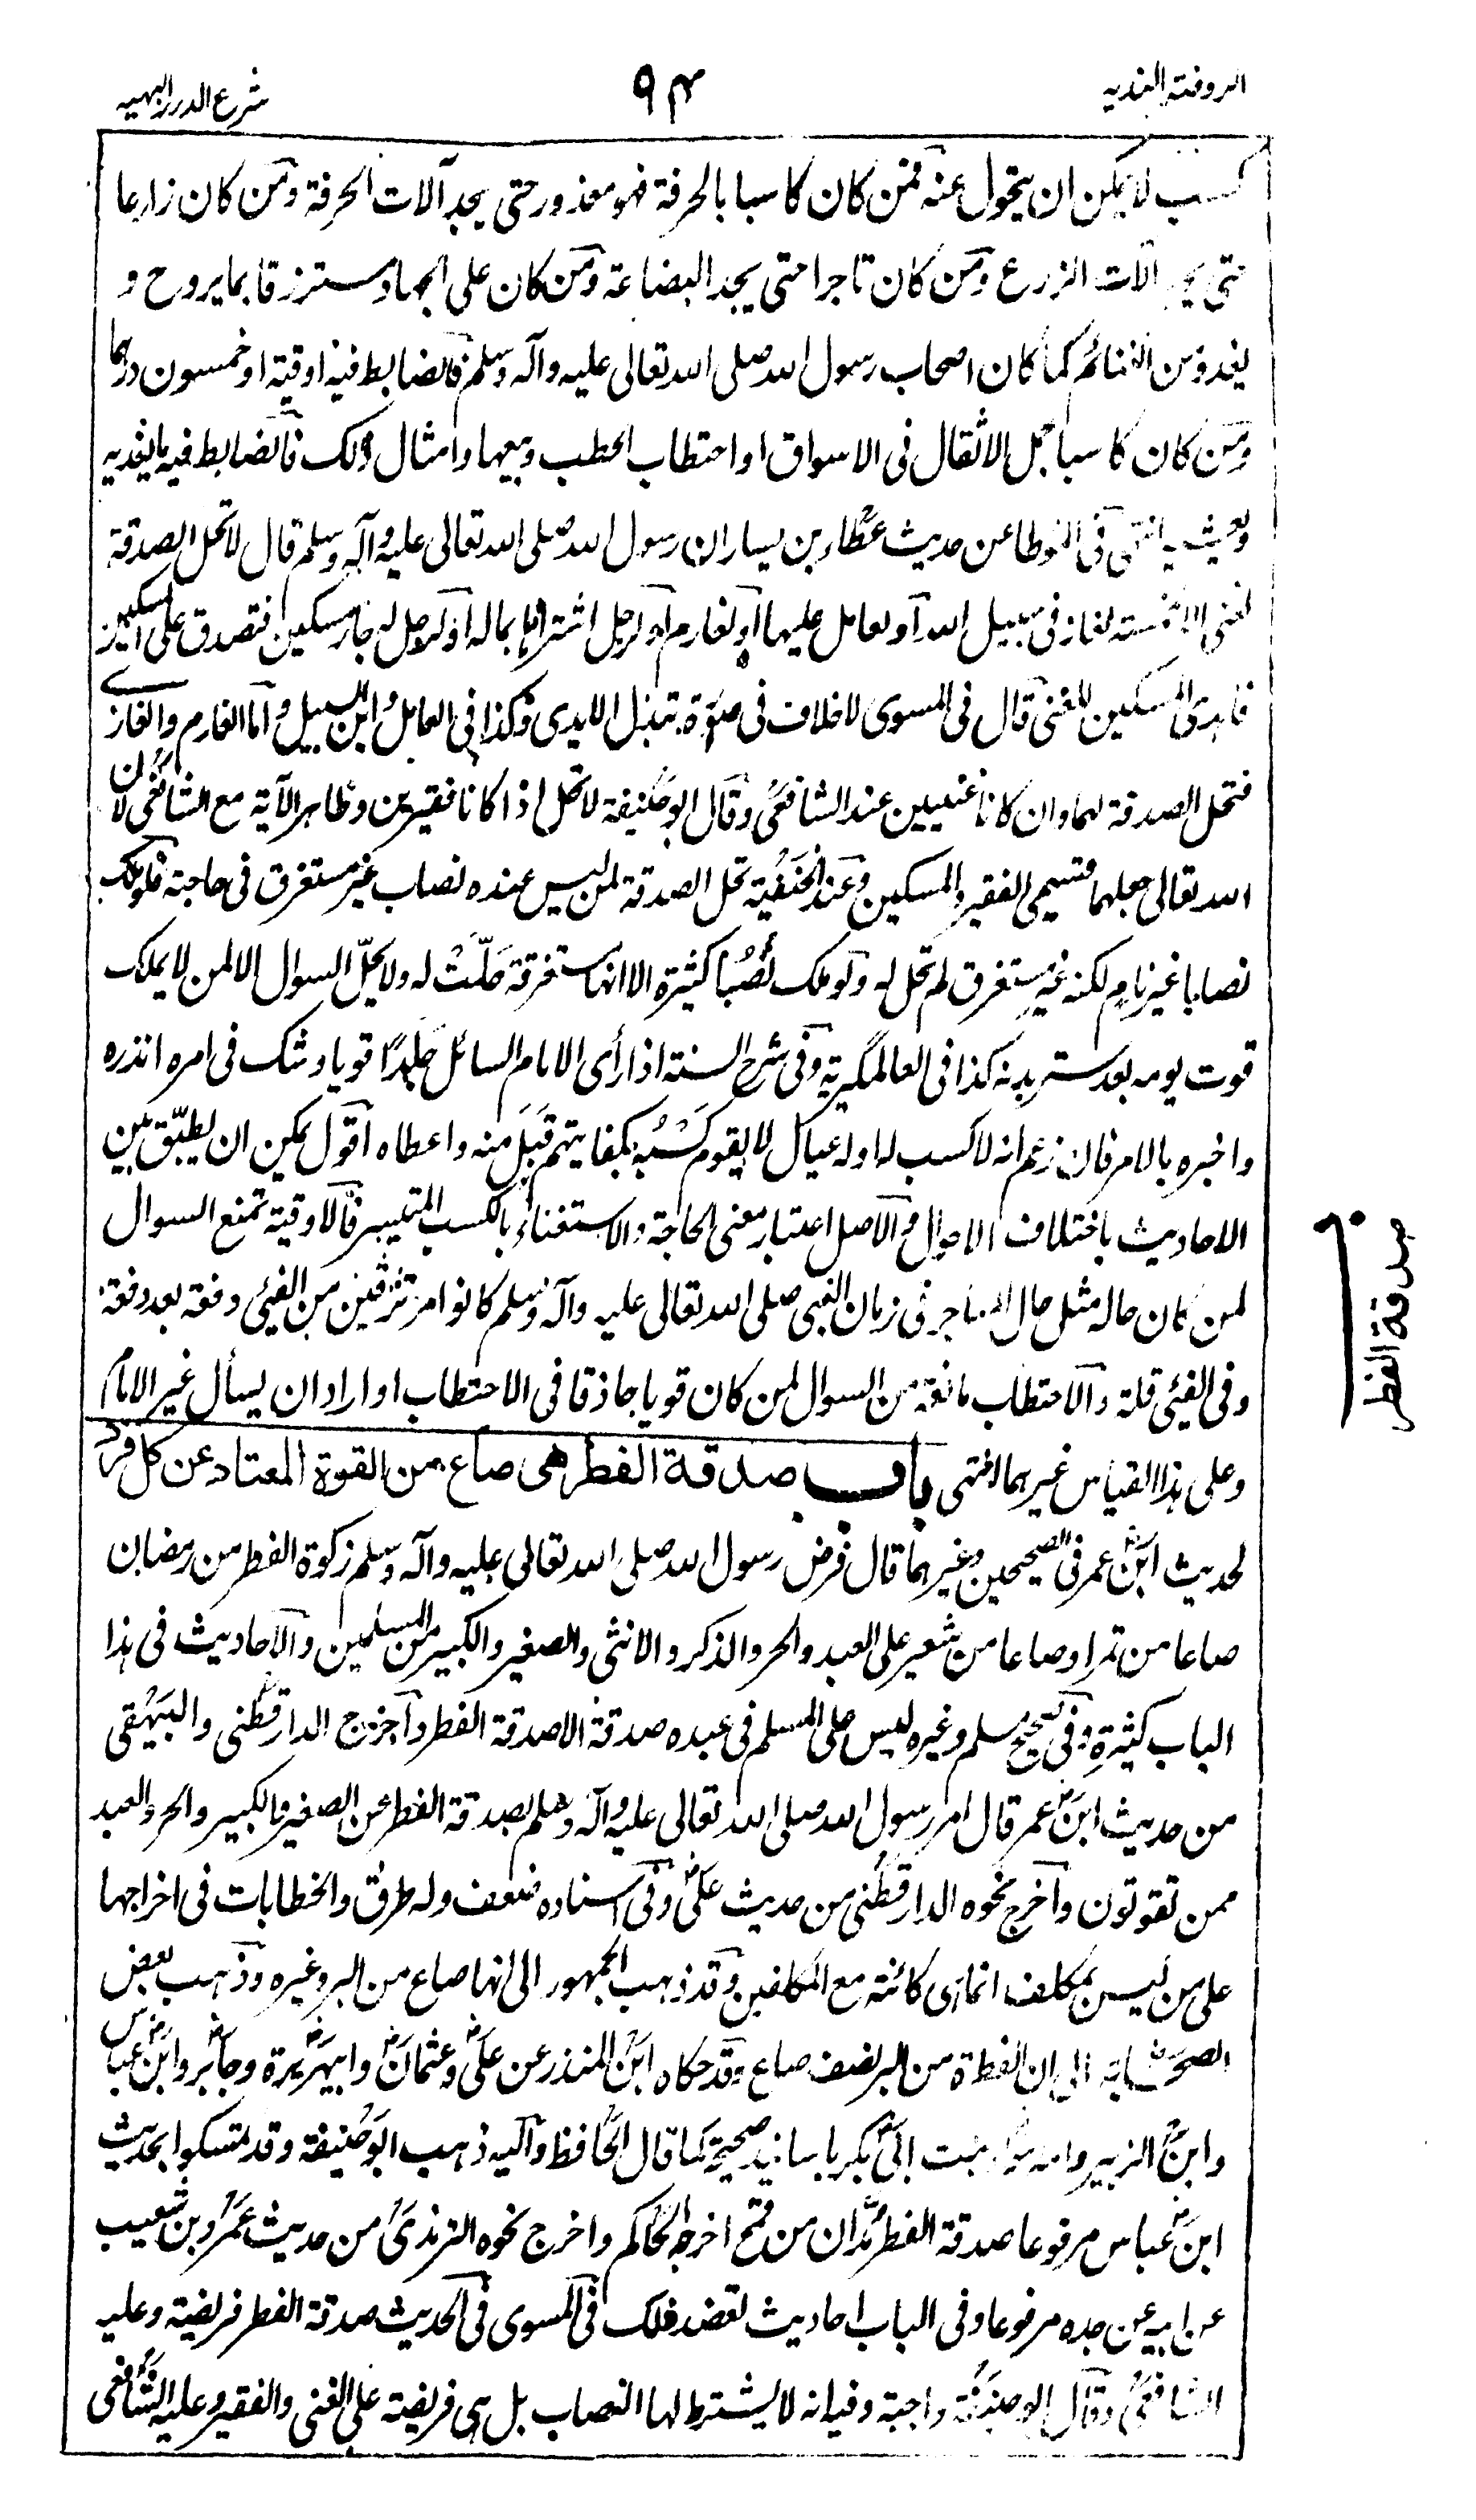 الروضة الندیه
۹۴
شرح الدرر البهیه
کسب لا یمکن ان یتحول عنه فمن کان کاسبا بالحرفة فهو معذور حتی یجد آلات الحرفة ومن کان زارعا
حتی یجد آلات الزرع ومن کان تاجرا حتی یجد البضاعة ومن کان علی الجهاد مسترزقا بما یروح و
یغدو من الغنائم کما کان اصحاب رسول الله صلی الله تعالی علیه وآله وسلم فالضابط فیه اوقیة او خمسون درهما
ومن کان کاسبا بحمل الاثقال فی الاسواق او احتطاب الحطب وبیعها وامثال ذلک فالضابط فیه ما یغدیه
ویعشیه انتهی فی الموطا عن حدیث عطاء بن یسار ان رسول الله صلی الله تعالی علیه وآله وسلم قال لا تحل الصدقة
لغنی الا لخمسة لغاز فی سبیل الله او لعامل علیها او لغارم او لرجل اشتراها بماله او لرجل له جار مسکین فتصدق علی المسکین
فاهدی المسکین للغنی قال فی المسوی لا خلاف فی صورة تبدل الایدی وکذا فی العامل وابن السبیل واما الغارم والغازی
فتحل الصدقة لهما وان کانا غنیین عند الشافعی وقال ابو حنیفة لا تحل الا اذا کانا فقیرین وظاهر الآیة مع الشافعی لان
الله تعالی جعلهما قسیمی الفقیر والمسکین وعند الحنفیة تحل الصدقة لمن لیس عنده نصاب غیر مستغرق فی حاجته فلو ملک
نصابا غیر نام لکنه غیر مستغرق لم تحل له ولو ملک نصبا کثیرة الا انها مستغرقة حلّت له ولا یحلّ السوال الا لمن لا یملک
قوت یومه بعد ستر بدنه کذا فی العالمگیریة وفی شرح السنة اذا رأی الامام السائل جلدًا قویا وشک فی امره انذره
واخبره بالامر فان زعم انه لا کسب له او له عیال لا یقوم کسبه بکفایتهم قبل منه واعطاه اقول یمکن ان یطبّق بین
الاحادیث باختلاف الاحوال والاصل اعتبار معنی الحاجة والاستغناء بالکسب المتیسر فالاوقیة تمنع السوال
لمن کان حاله مثل حال المهاجر فی زمان النبی صلی الله تعالی علیه وآله وسلم کانوا مرتزقین من الفیئی دفعة بعد دفعة
وفی الفیئی قلة والاحتطاب مانعة من السوال لمن کان قویا حاذقا فی الاحتطاب او اراد ان یسأل غیر الامام
وعلی هذا القیاس غیرهما انتهی باب صدقة الفطر هی صاع من القوة المعتاد عن کل فرد
لحدیث ابن عمر فی الصحیحین وغیرهما قال فرض رسول الله صلی الله تعالی علیه وآله وسلم زکوة الفطر من رمضان
صاعا من تمر او صاعا من شعیر علی العبد والحر والذکر والانثی والصغیر والکبیر من المسلمین والاحادیث فی هذا
الباب کثیرة وفی صحیح مسلم وغیره لیس علی المسلم فی عبده صدقة الا صدقة الفطر واخرج الدار قطنی والبیهقی
من حدیث ابن عمر قال امر رسول الله صلی الله تعالی علیه وآله وسلم بصدقة الفطر عن الصغیر والکبیر والحر والعبد
ممن تقوتون واخرج نحوه الدارقطنی من حدیث علی وفی اسناده ضعف وله طرق والخطابات فی اخراجها
علی من لیس بمکلف انما هی کائنة مع المکلفین وقد ذهب الجمهور الی انها صاع من البر وغیره وذهب بعض
الصحابة الی ان الفطرة من البر نصف صاع وقد حکاه ابن المنذر عن علی وعثمان وابی هریرة وجابر وابن عباس
وابن الزبیر وامه اسماء بنت ابی بکر باسانید صحیحة کما قال الحافظ والیه ذهب ابو حنیفة وقد تمسکوا بحدیث
ابن عباس مرفوعا صدقة الفطر مدّان من قمح اخرجه الحاکم واخرج نحوه الترمذی من حدیث عمرو بن شعیب
عن ابیه عن جده مرفوعا وفی الباب احادیث تعضد ذلک فی المسوی فی الحدیث صدقة الفطر فریضة وعلیه
الشافعی وقال ابو حنیفة واجبة وفیه انه لا یشترط لها النصاب بل هی فریضة علی الغنی والفقیر وعلیه الشافعی
صدقة الفطر